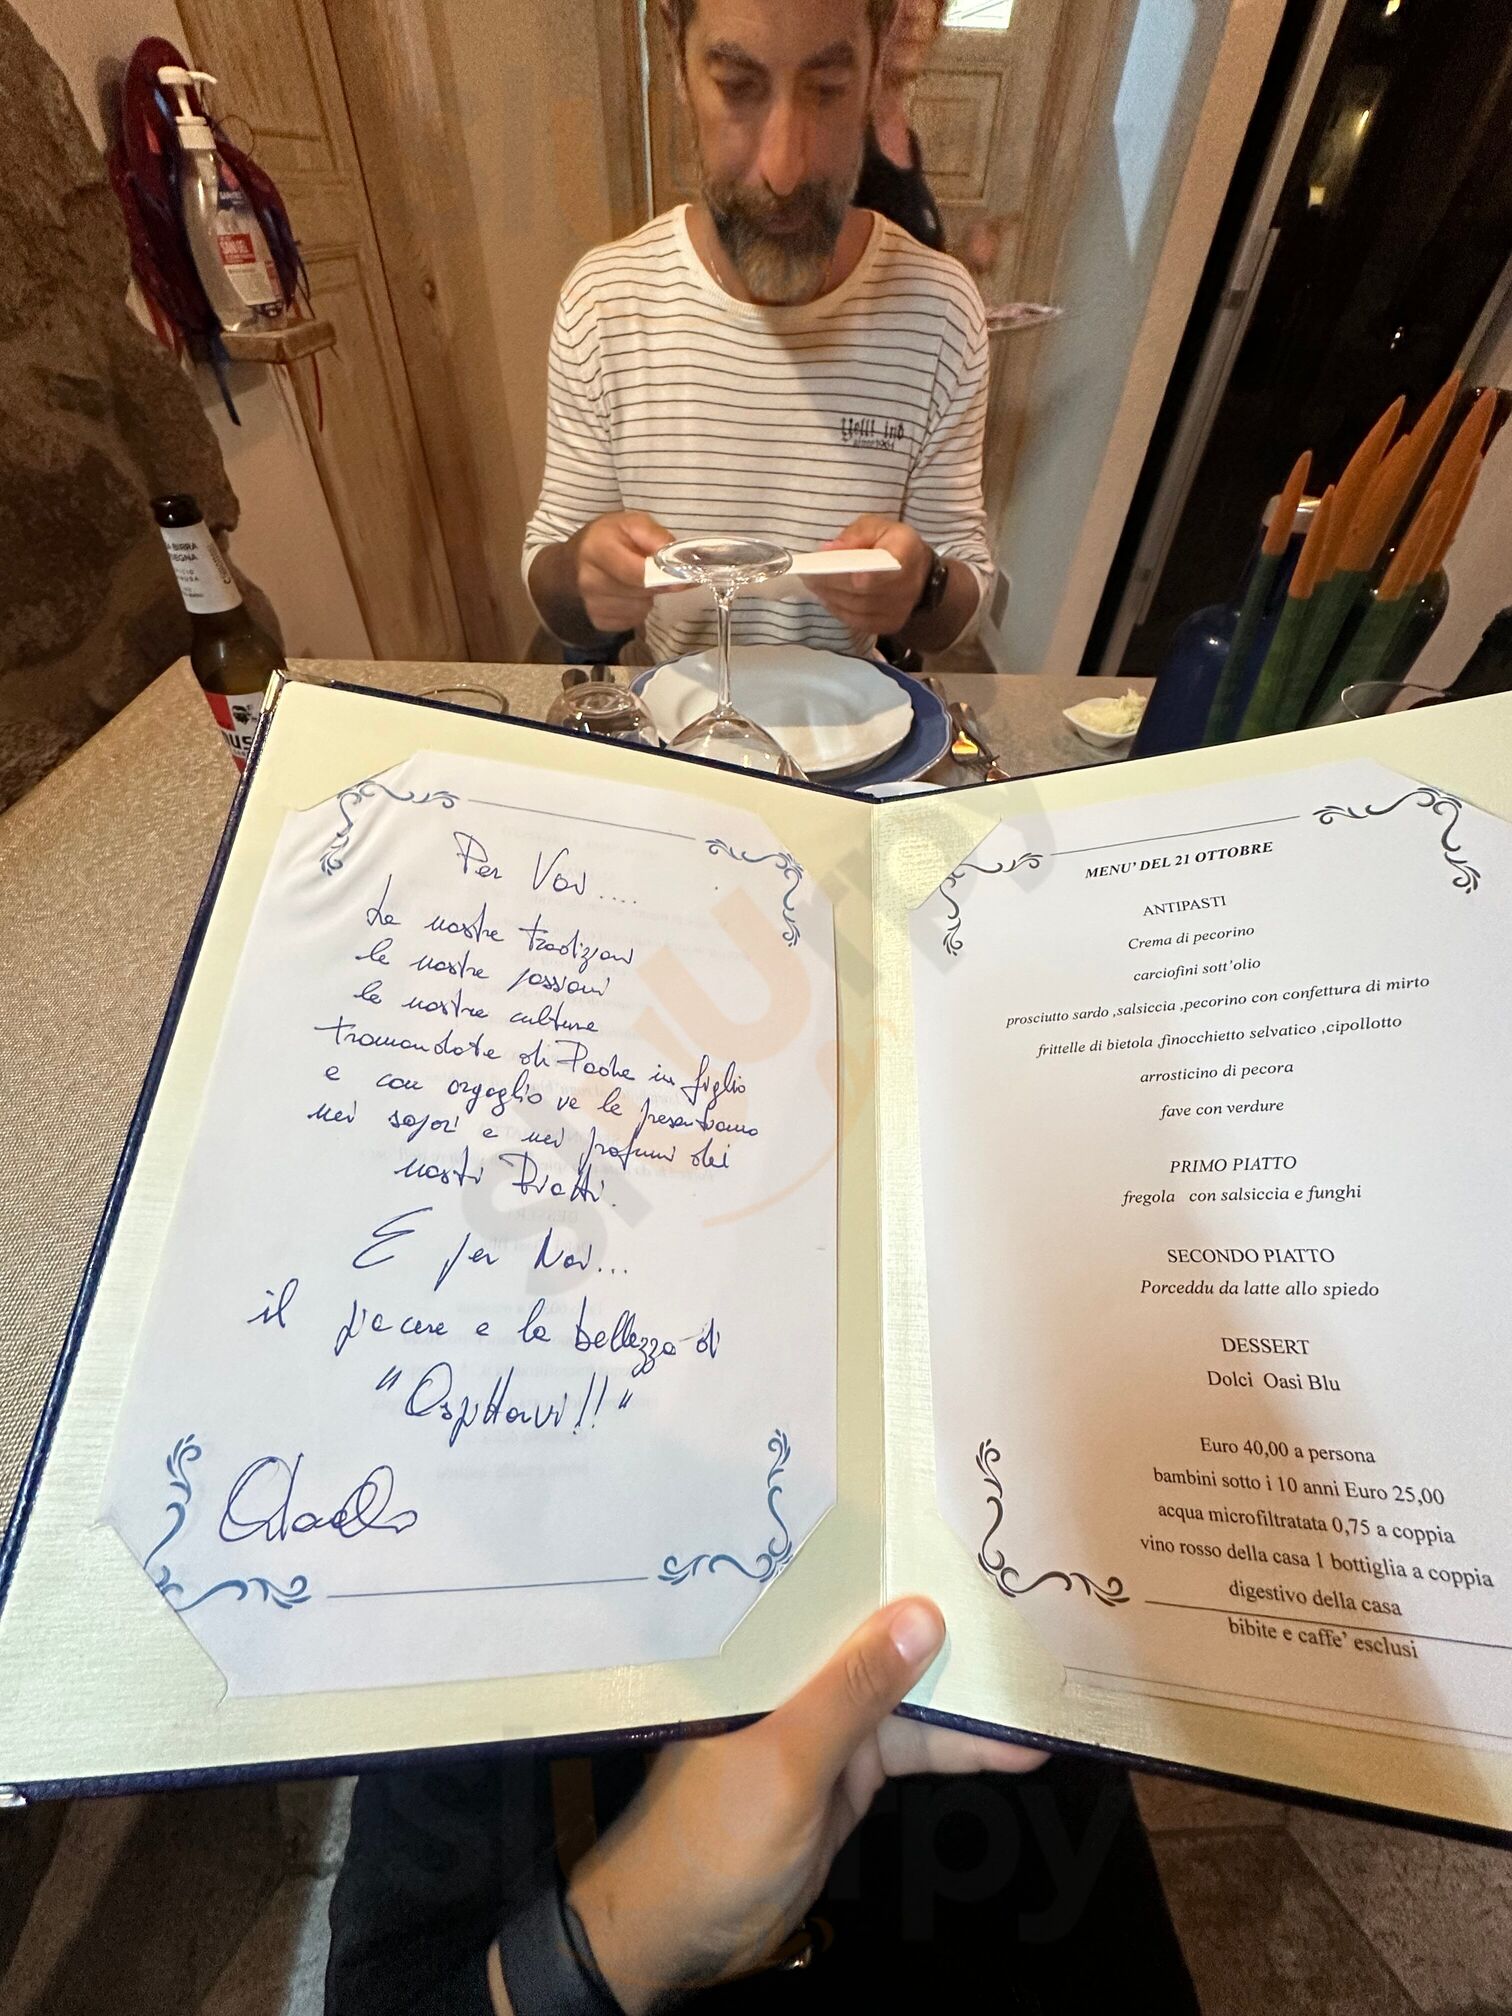 Per Voi....
Le nostre tradizioni
le nostre passioni
le nostre culture
tramandate di Padre in figlio
e con orgoglio ve le presentiamo
nei sapori e nei profumi dei
nostri Piatti.
E per Noi...
il piacere e la bellezza di
"Ospitarvi!!"
MENU' DEL 21 OTTOBRE
ANTIPASTI
Crema di pecorino
carciofini sott'olio
prosciutto sardo ,salsiccia ,pecorino con confettura di mirto
frittelle di bietola ,finocchietto selvatico ,cipollotto
arrosticino di pecora
fave con verdure
PRIMO PIATTO
fregola con salsiccia e funghi
SECONDO PIATTO
Porceddu da latte allo spiedo
DESSERT
Dolci Oasi Blu
Euro 40,00 a persona
bambini sotto i 10 anni Euro 25,00
acqua microfiltratata 0,75 a coppia
vino rosso della casa 1 bottiglia a coppia
digestivo della casa
bibite e caffe' esclusi
since 1961
BIRRA
slurpy
slurpy